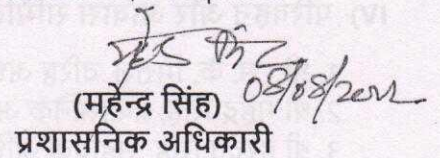 08/08/2022
(महेन्द्र सिंह)
प्रशासनिक अधिकारी